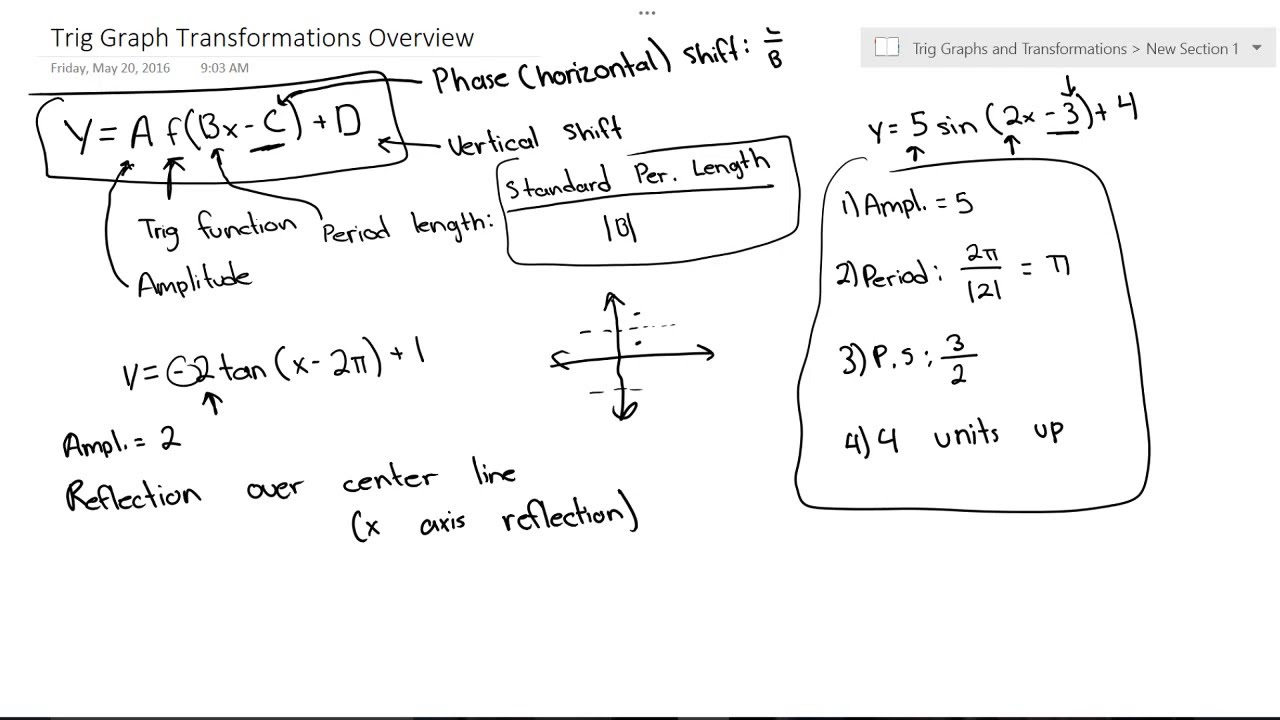 Trig Graph Transformations Overview
Friday, May 20, 2016 9:03 AM
Trig Graphs and Transformations > New Section 1
Phase (horizontal) shift: C/B
Y = A f(Bx - C) + D
Vertical shift
Trig function
Period length: Standard Per. Length / |B|
Amplitude
y = -2 tan (x - 2π) + 1
Ampl. = 2
Reflection over center line
(x axis reflection)
y = 5 sin (2x - 3) + 4
1) Ampl. = 5
2) Period: 2π/|2| = π
3) P.S: 3/2
4) 4 units up